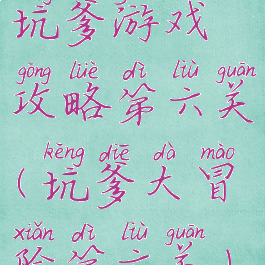 坑爹游戏
gōng lüè dì liù guān
攻略第六关
kēng diē dà mào
(坑爹大冒
xiǎn dì liù guān
险第六关)